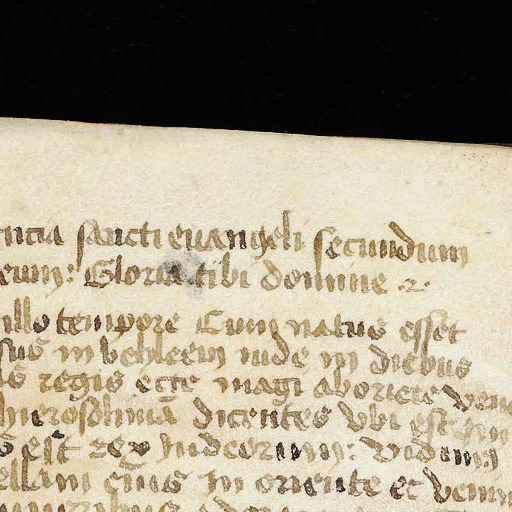 ncia sancti euangeli secundum
eum: Gloria tibi domine .2.
illo tempore Cum natus esset
sus in bethleem iude in diebus
is regis ecce magi ab oriete vene
hierosolimā dicentes Vbi est
s est rex Iudeorum: Vidimus
ellam eius in oriente et venim